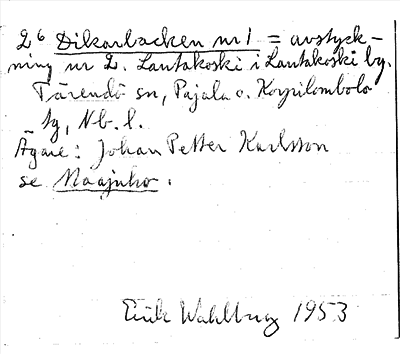 2⁶ Dikarbacken nr 1 = avstyck-
ning nr 2. Lantakoski i Lantakoski by.
Tärendö sn, Pajala o. Korpilombolo
tg, Nb. l.
Ägare: Johan Petter Karlsson
se Maajuho.
Erik Wahlberg 1953